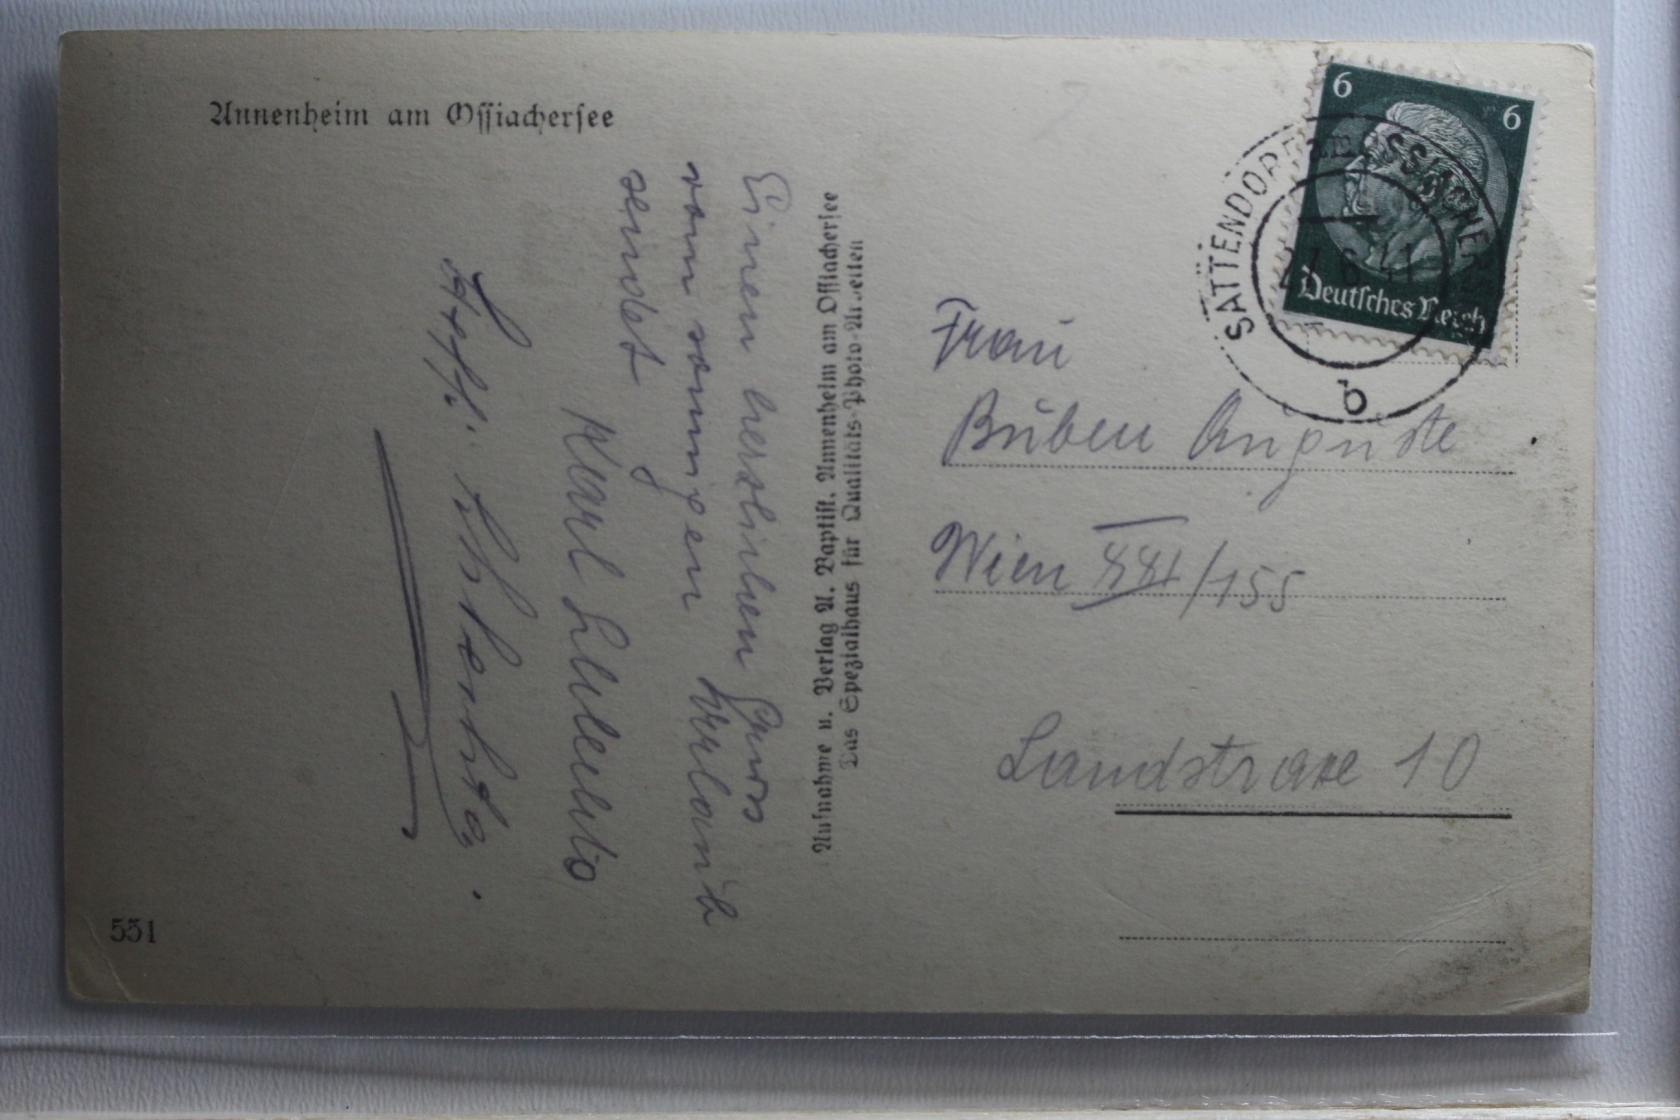 Annenheim am Ossiachersee
Einen herzlichen Gruss
vom sonnigen Urlaub
sendet
Karl
551
Aufnahme u. Verlag A. Baptist, Annenheim am Ossiachersee
Das Spezialhaus für Qualitäts-Photo-Arbeiten
6 6
Deutsches Reich
SATTENDORF OSSIACHER
b
Frau
Buben Auguste
Wien XXI/155
Landstrase 10